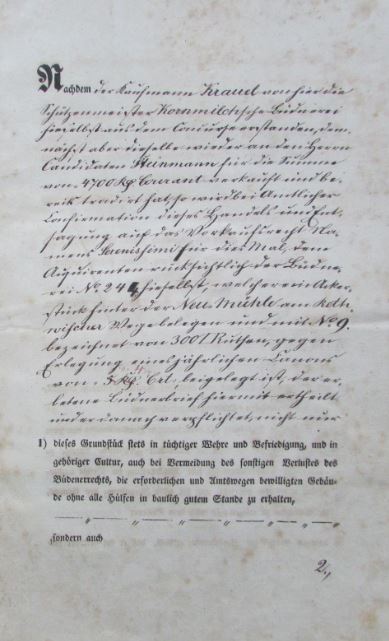 Nachdem der Kaufmann Kraudt von hier die
Schützenmeister Kornmilchsche Büdnerei
hieselbst aus dem Concurse erstanden, dem-
nächst aber dieselbe wieder an den Herrn
Candidaten Steinmann für die Summe
von 4700 Courant verkauft und be-
reits tradirt hat, so wird bei Amtlicher
Confirmation dieses Handels und Ent-
sagung auf das Vorkaufsrecht No-
mens Serenissimi für dies Mal, dem
Acquirenten rücksichtlich der Büdne-
rei No. 24 hieselbst, welcher ein Acker-
stück hinter der Neuen Mühle am
Wege belegen und mit No 9.
bezeichnet von 300 Ruthen, gegen
Erlegung eines jährlichen Canons
von 5 Crt. beigelegt ist, der er-
betene Büdnerbrief hiermit ertheilt
und er danach verpflichtet, nicht nur
1) dieses Grundstück stets in tüchtiger Wehre und Befriedigung, und in
gehöriger Cultur, auch bei Vermeidung des sonstigen Verlustes des
Büdnerrechts, die erforderlichen und Amtswegen bewilligten Gebäu-
de ohne alle Hülfen in baulich gutem Stande zu erhalten,
sondern auch
2.,